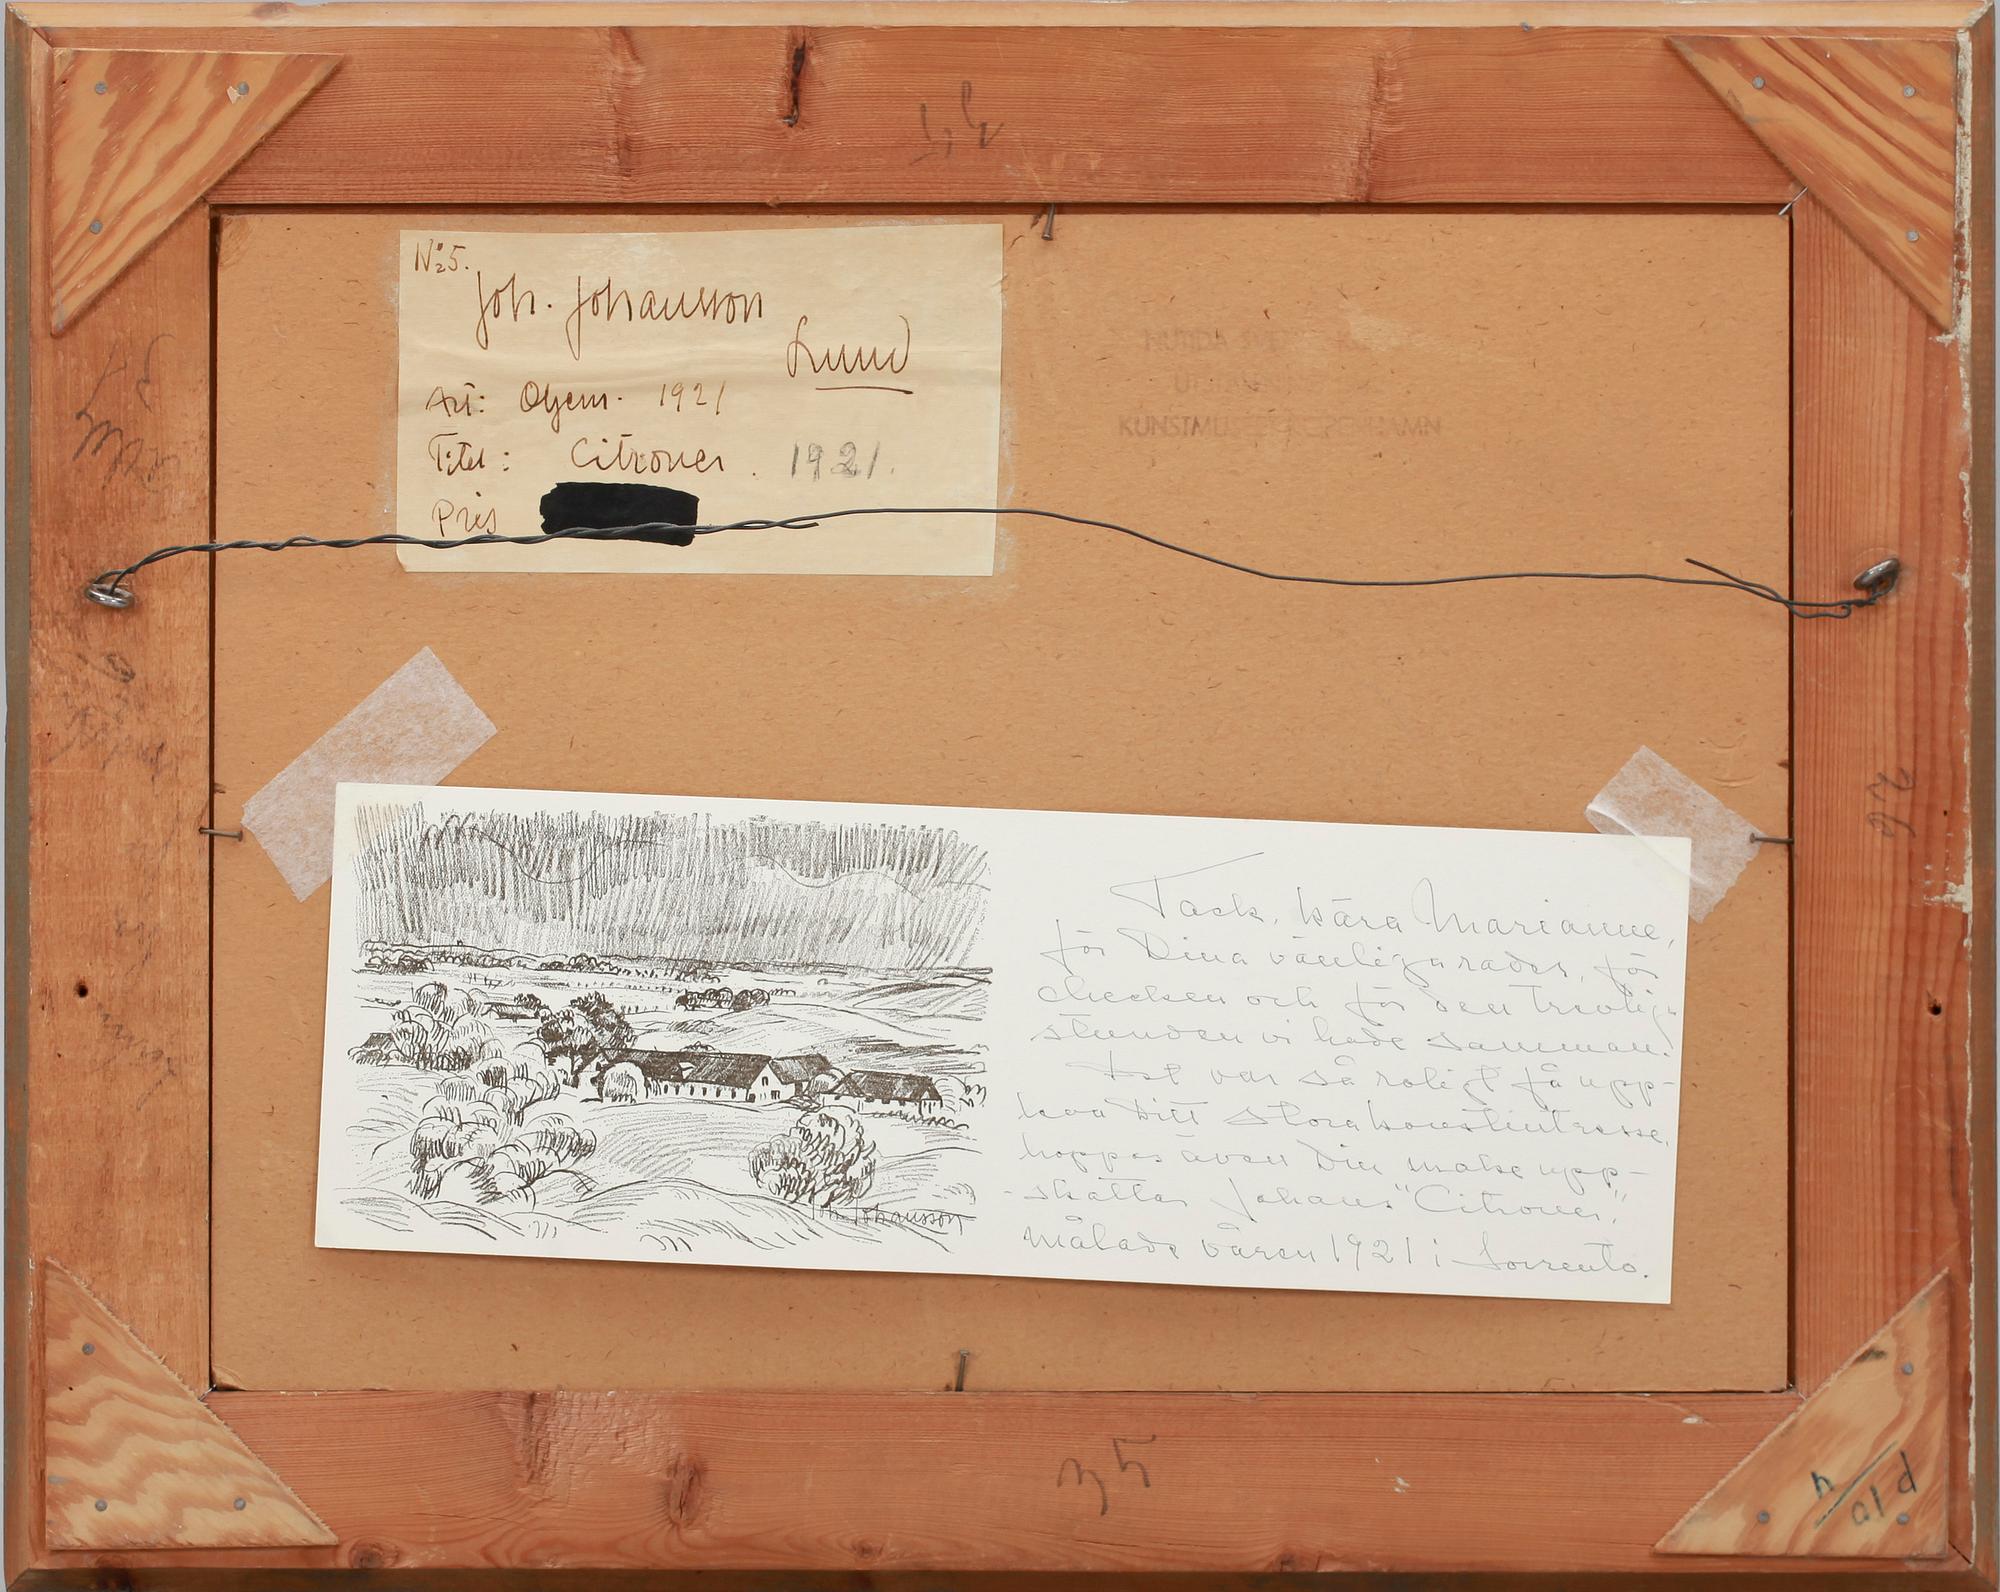 N:o 5.
Joh. Johansson
Lund
Art: Oljem. 1921
Titel: Citroner. 1921.
Pris
KUNSTMUSEET KÖPENHAMN
Tack, kära Marianne,
för Dina vänliga rader, för
checken och för den trevliga
stunden vi hade samman.
Det var så roligt få upp-
leva Ditt stora konstintresse,
hoppas även Din make upp-
skattar Johans "Citroner",
målade våren 1921 i Sorrento.
Joh. Johansson
35